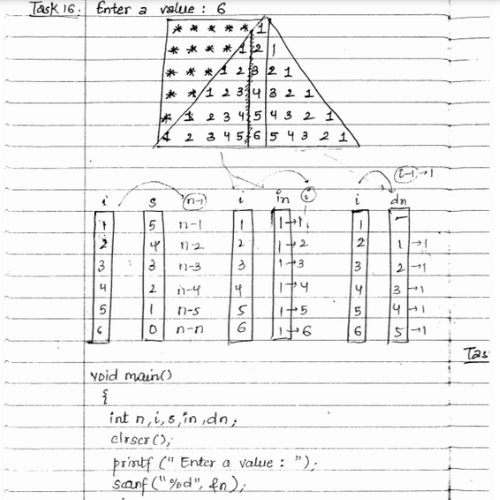 Task 16. Enter a value : 6
* * * * * 1
* * * * 1 2 1
* * * 1 2 3 2 1
* * 1 2 3 4 3 2 1
* 1 2 3 4 5 4 3 2 1
1 2 3 4 5 6 5 4 3 2 1
i-1→1
i s n-i i in i i dn
1 5 n-1 1 1→1 1 -
2 4 n-2 2 1→2 2 1→1
3 3 n-3 3 1→3 3 2→1
4 2 n-4 4 1→4 4 3→1
5 1 n-5 5 1→5 5 4→1
6 0 n-n 6 1→6 6 5→1
Tas
void main()
{
int n,i,s,in,dn;
clrscr();
printf (" Enter a value : ");
scanf ("%d", &n);